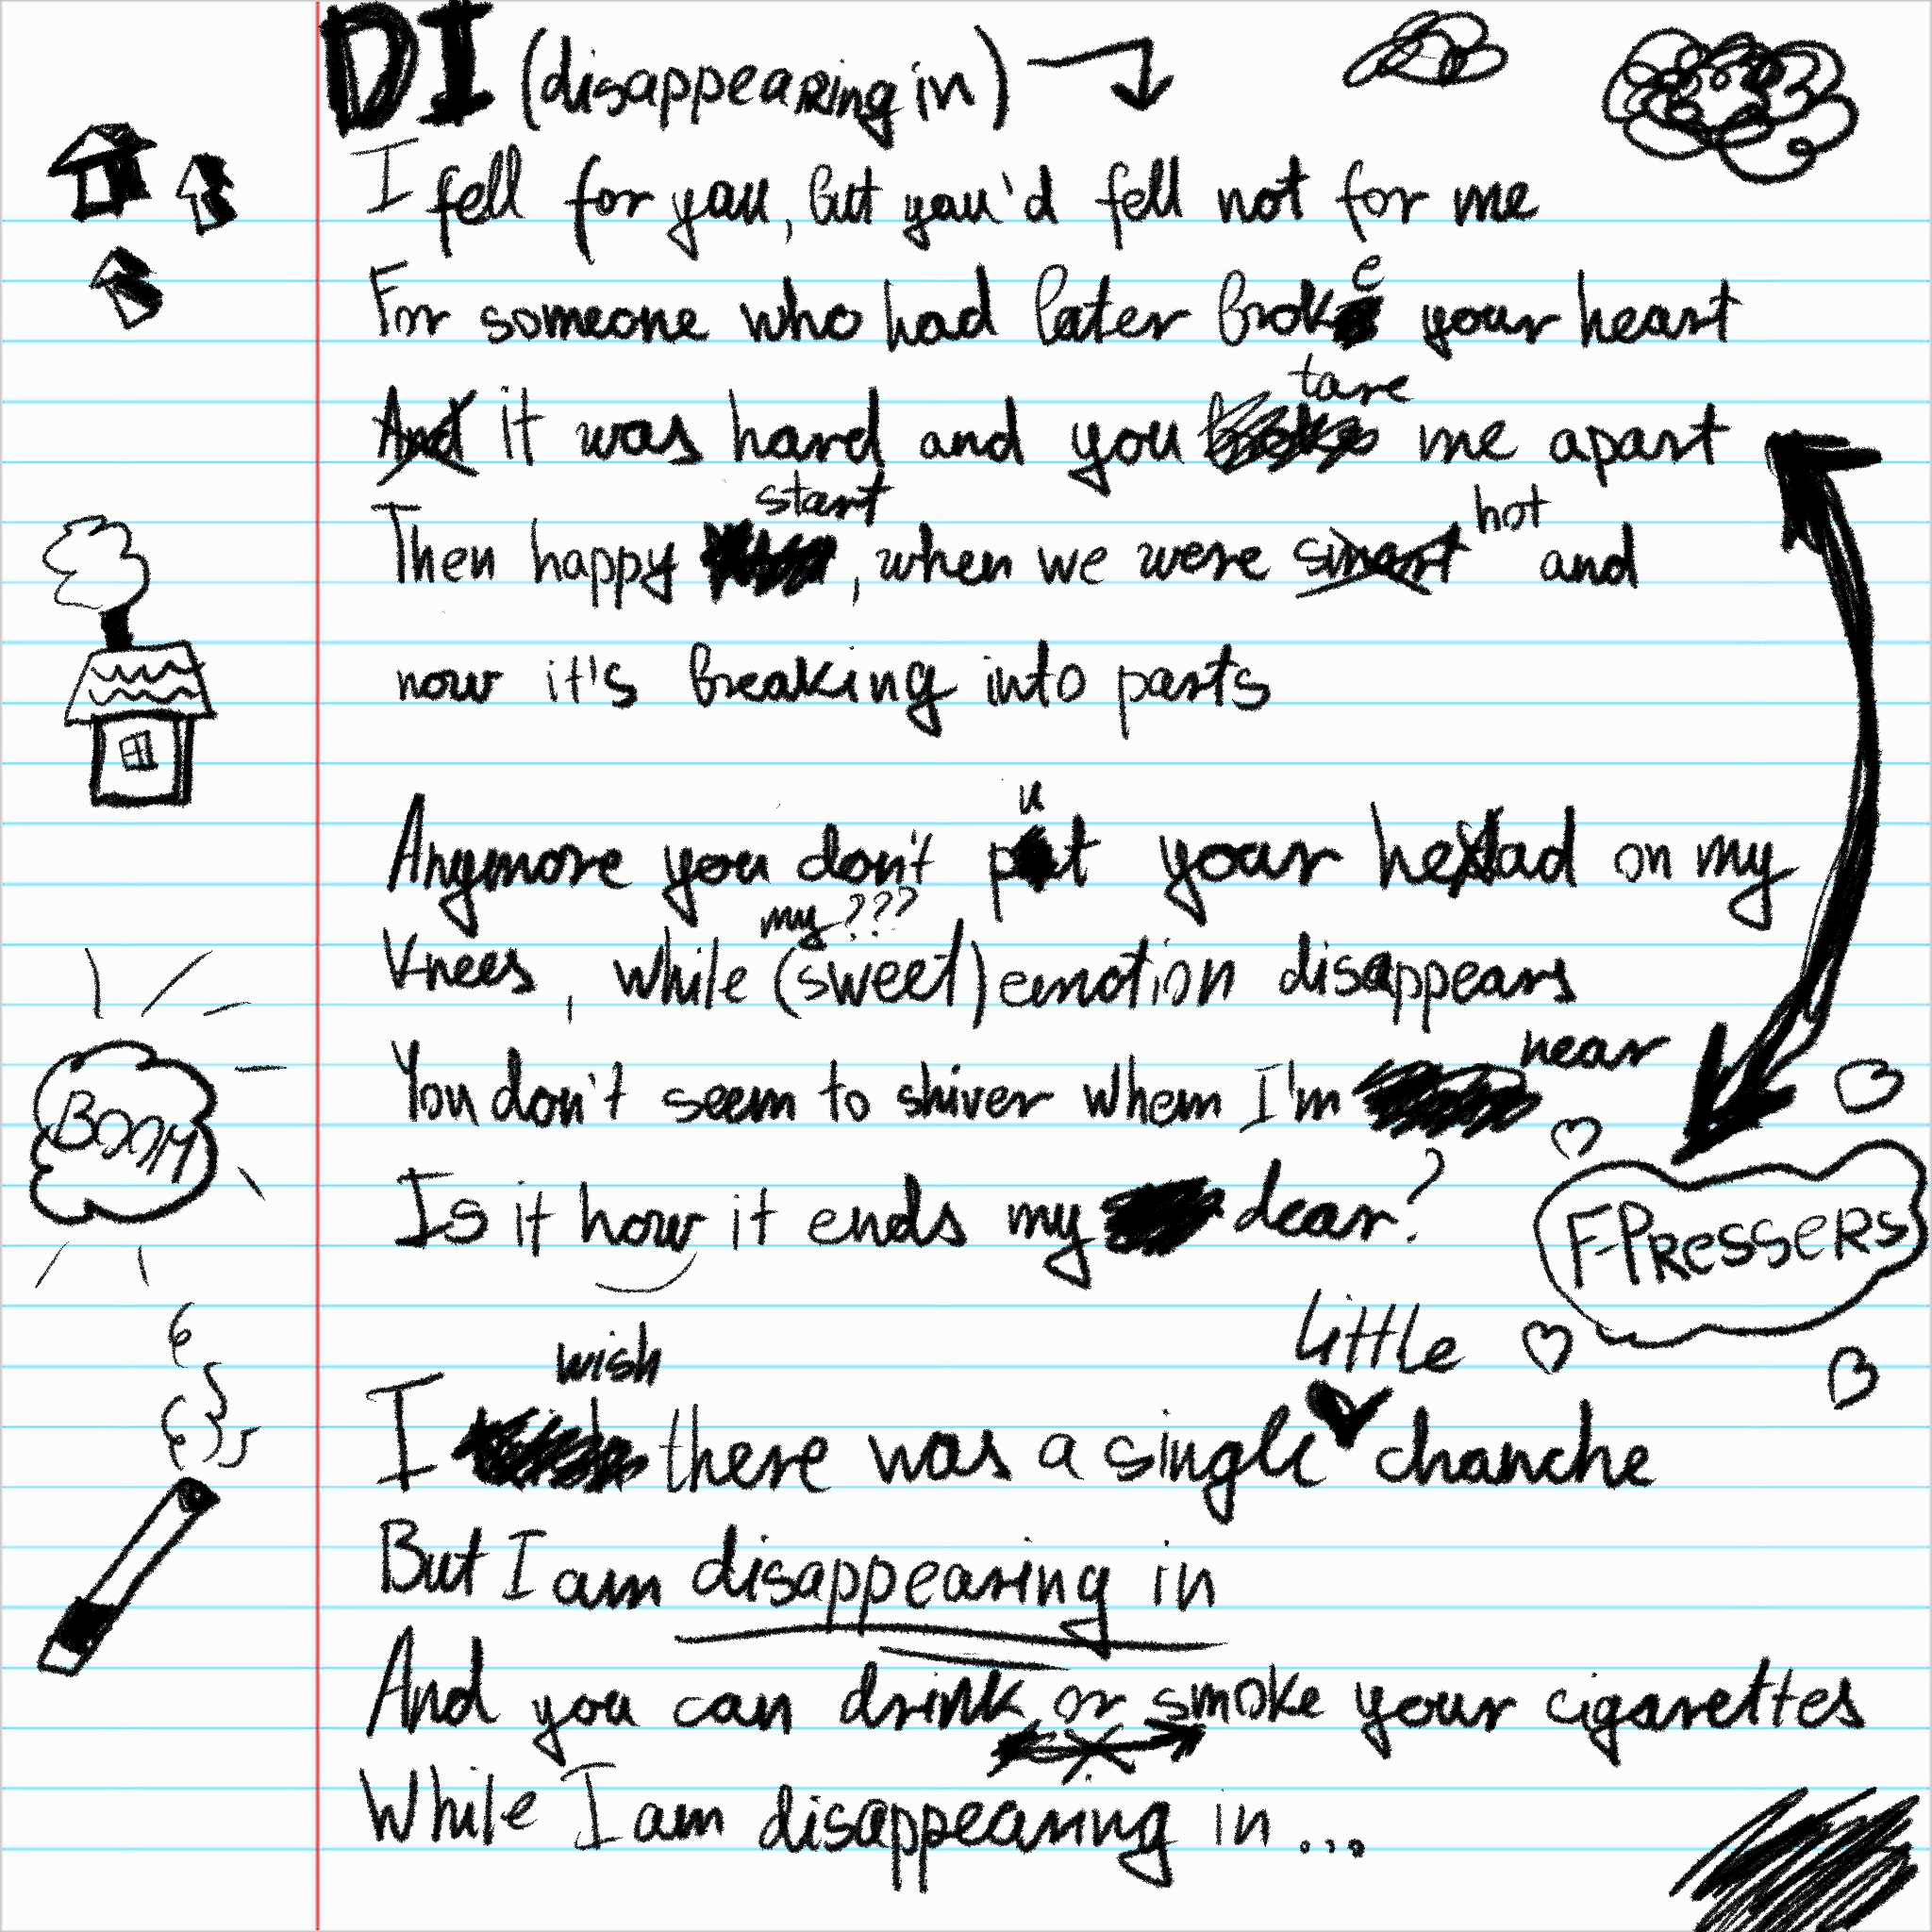 DI (disappearing in)
I fell for you, but you'd fell not for me
For someone who had later broke your heart
And it was hard and you tare me apart
Then happy start, when we were smart hot and
now it's breaking into parts
Anymore you don't put your head on my
knees, while (sweet) my??? emotion disappears
You don't seem to shiver when I'm near
Is it how it ends my dear?
I wish there was a single little chanche
But I am disappearing in
And you can drink or smoke your cigarettes
While I am disappearing in...
BOOM
FPRESSERS